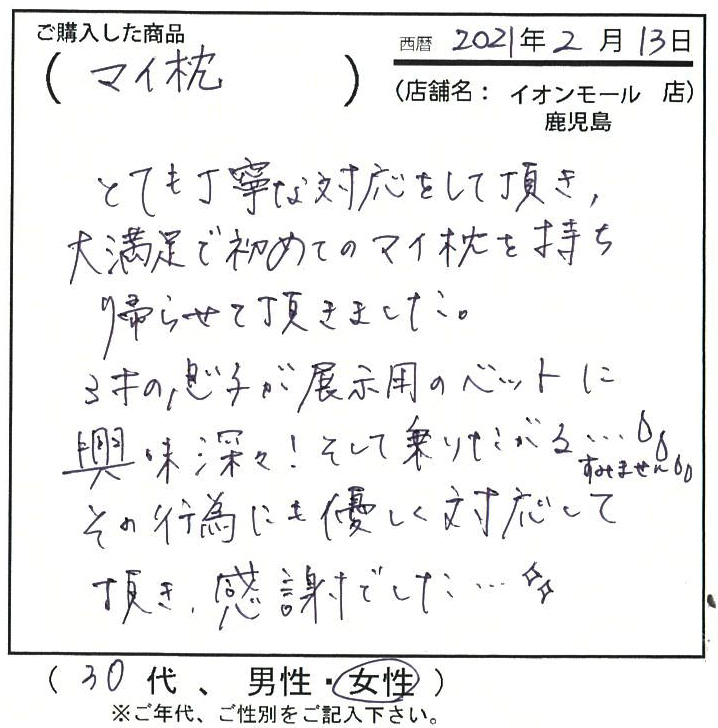 ご購入した商品
西暦 2021年2月13日
(マイ枕)
(店舗名: イオンモール 店)
鹿児島
とても丁寧な対応をして頂き,
大満足で初めてのマイ枕を持ち
帰らせて頂きました。
3才の息子が展示用のベットに
興味深々!そして乗りたがる…
すみません
その行為にも優しく対応して
頂き、感謝でした…
(30代、男性・女性)
※ご年代、ご性別をご記入下さい。